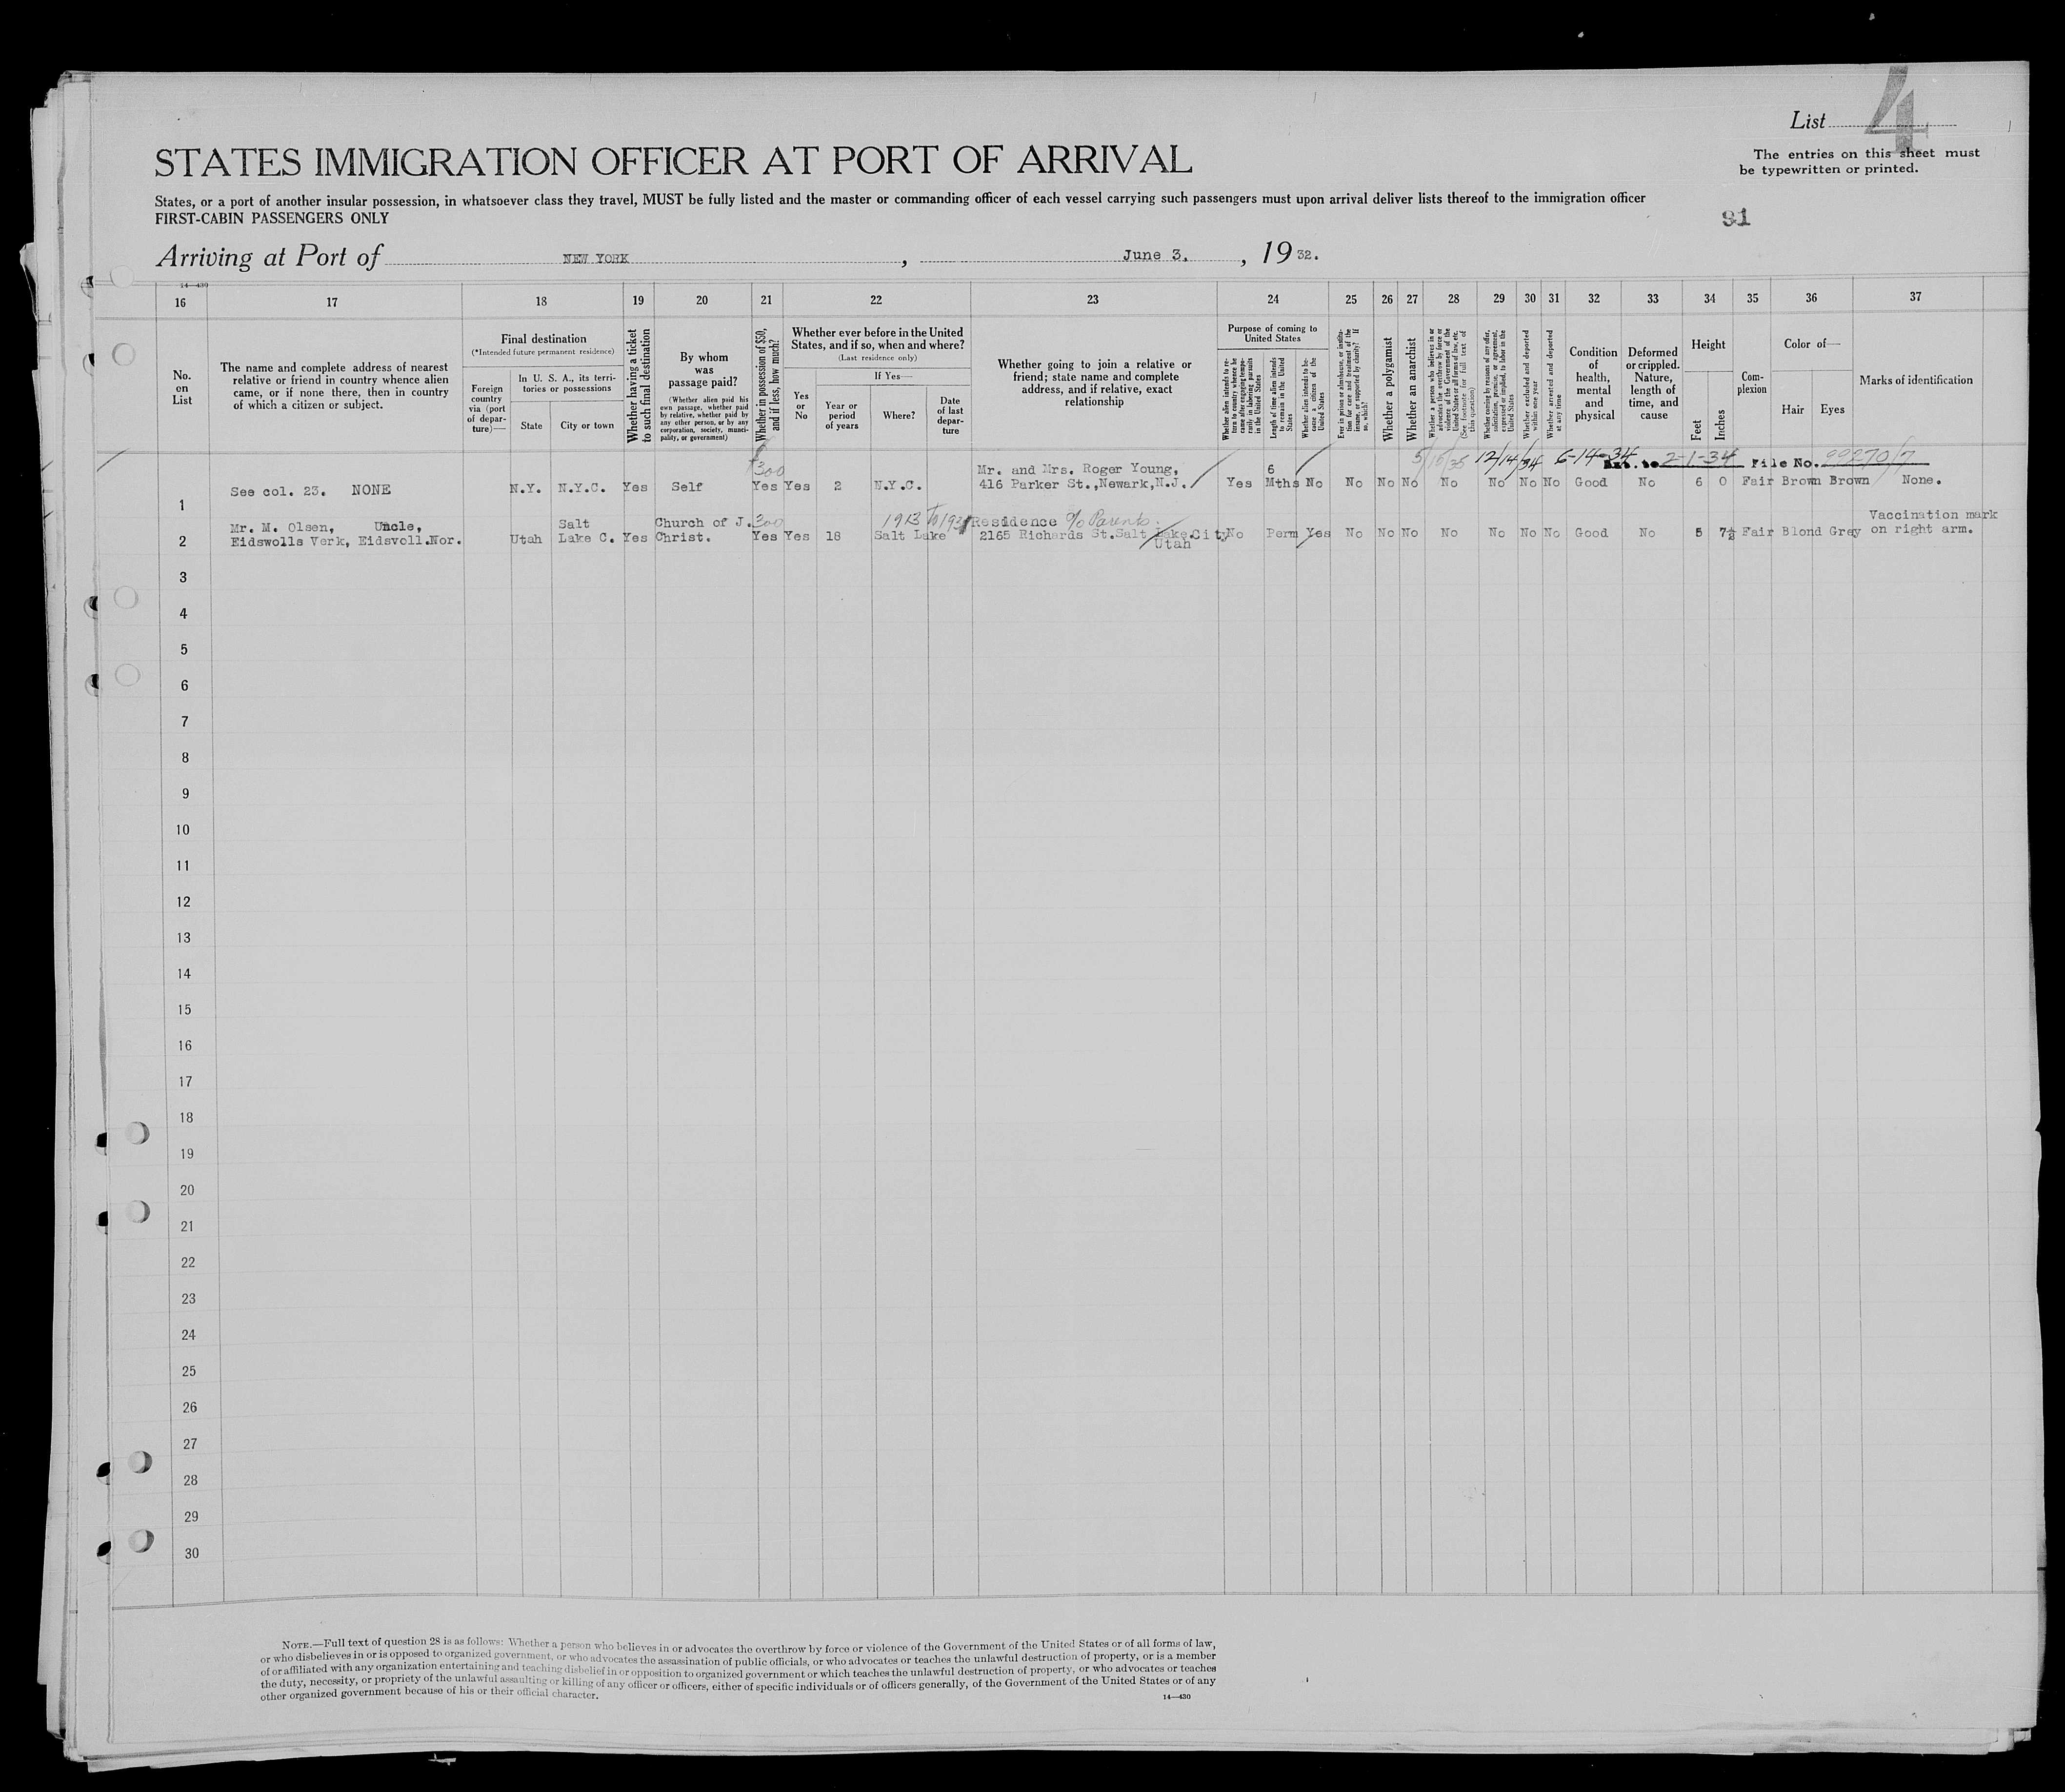 List 4
The entries on this sheet must
be typewritten or printed.
STATES IMMIGRATION OFFICER AT PORT OF ARRIVAL
States, or a port of another insular possession, in whatsoever class they travel, MUST be fully listed and the master or commanding officer of each vessel carrying such passengers must upon arrival deliver lists thereof to the immigration officer
FIRST-CABIN PASSENGERS ONLY
91
Arriving at Port of NEW YORK, June 3, 1932.
14—430
16 17 18 19 20 21 22 23 24 25 26 27 28 29 30 31 32 33 34 35 36 37
No.
on
List
The name and complete address of nearest
relative or friend in country whence alien
came, or if none there, then in country
of which a citizen or subject.
Final destination
(*Intended future permanent residence)
Foreign
country
via (port
of depar-
ture)—
In U. S. A., its terri-
tories or possessions
State
City or town
Whether having a ticket
to such final destination
By whom
was
passage paid?
(Whether alien paid his
own passage, whether paid
by relative, whether paid by
any other person, or by any
corporation, society, munici-
pality, or government)
Whether in possession of $50,
and if less, how much?
Whether ever before in the United
States, and if so, when and where?
(Last residence only)
If Yes—
Yes
or
No
Year or
period
of years
Where?
Date
of last
depar-
ture
Whether going to join a relative or
friend; state name and complete
address, and if relative, exact
relationship
Purpose of coming to
United States
Whether alien intends to re-
turn to country whence he
came after engaging tempo-
rarily in laboring pursuits
in the United States
Length of time alien intends
to remain in the United
States
Whether alien intends to be-
come a citizen of the
United States
Ever in prison or almshouse, or institu-
tion for care and treatment of the
insane, or supported by charity? If
so, which?
Whether a polygamist
Whether an anarchist
Whether a person who believes in or
advocates the overthrow by force or
violence of the Government of the
United States or all forms of law, etc.
(See footnote for full text of
this question)
Whether coming by reasons of any offer,
solicitation, promise, or agreement,
expressed or implied, to labor in the
United States
Whether excluded and deported
within one year
Whether arrested and deported
at any time
Condition
of
health,
mental
and
physical
Deformed
or crippled.
Nature,
length of
time, and
cause
Height
Feet
Inches
Com-
plexion
Color of—
Hair
Eyes
Marks of identification
5/15/35 12/14/34 6-14-34 Ext. to 2-1-34 File No. 99270/7
300 Mr. and Mrs. Roger Young, 6
See col. 23. NONE N.Y. N.Y.C. Yes Self Yes Yes 2 N.Y.C. 416 Parker St.,Newark,N.J. Yes Mths No No No No No No No No Good No 6 0 Fair Brown Brown None.
1
Mr. M. Olsen, Uncle, Salt Church of J. 300 1913 to 1931 Residence % Parents. Vaccination mark
2 Eidswolls Verk, Eidsvoll.Nor. Utah Lake C. Yes Christ. Yes Yes 18 Salt Lake 2165 Richards St.Salt Lake City No Perm Yes No No No No No No No Good No 5 7½ Fair Blond Grey on right arm.
Utah
3
4
5
6
7
8
9
10
11
12
13
14
15
16
17
18
19
20
21
22
23
24
25
26
27
28
29
30
NOTE.—Full text of question 28 is as follows: Whether a person who believes in or advocates the overthrow by force or violence of the Government of the United States or of all forms of law,
or who disbelieves in or is opposed to organized government, or who advocates the assassination of public officials, or who advocates or teaches the unlawful destruction of property, or is a member
of or affiliated with any organization entertaining and teaching disbelief in or opposition to organized government or which teaches the unlawful destruction of property, or who advocates or teaches
the duty, necessity, or propriety of the unlawful assaulting or killing of any officer or officers, either of specific individuals or of officers generally, of the Government of the United States or of any
other organized government because of his or their official character.
14—430